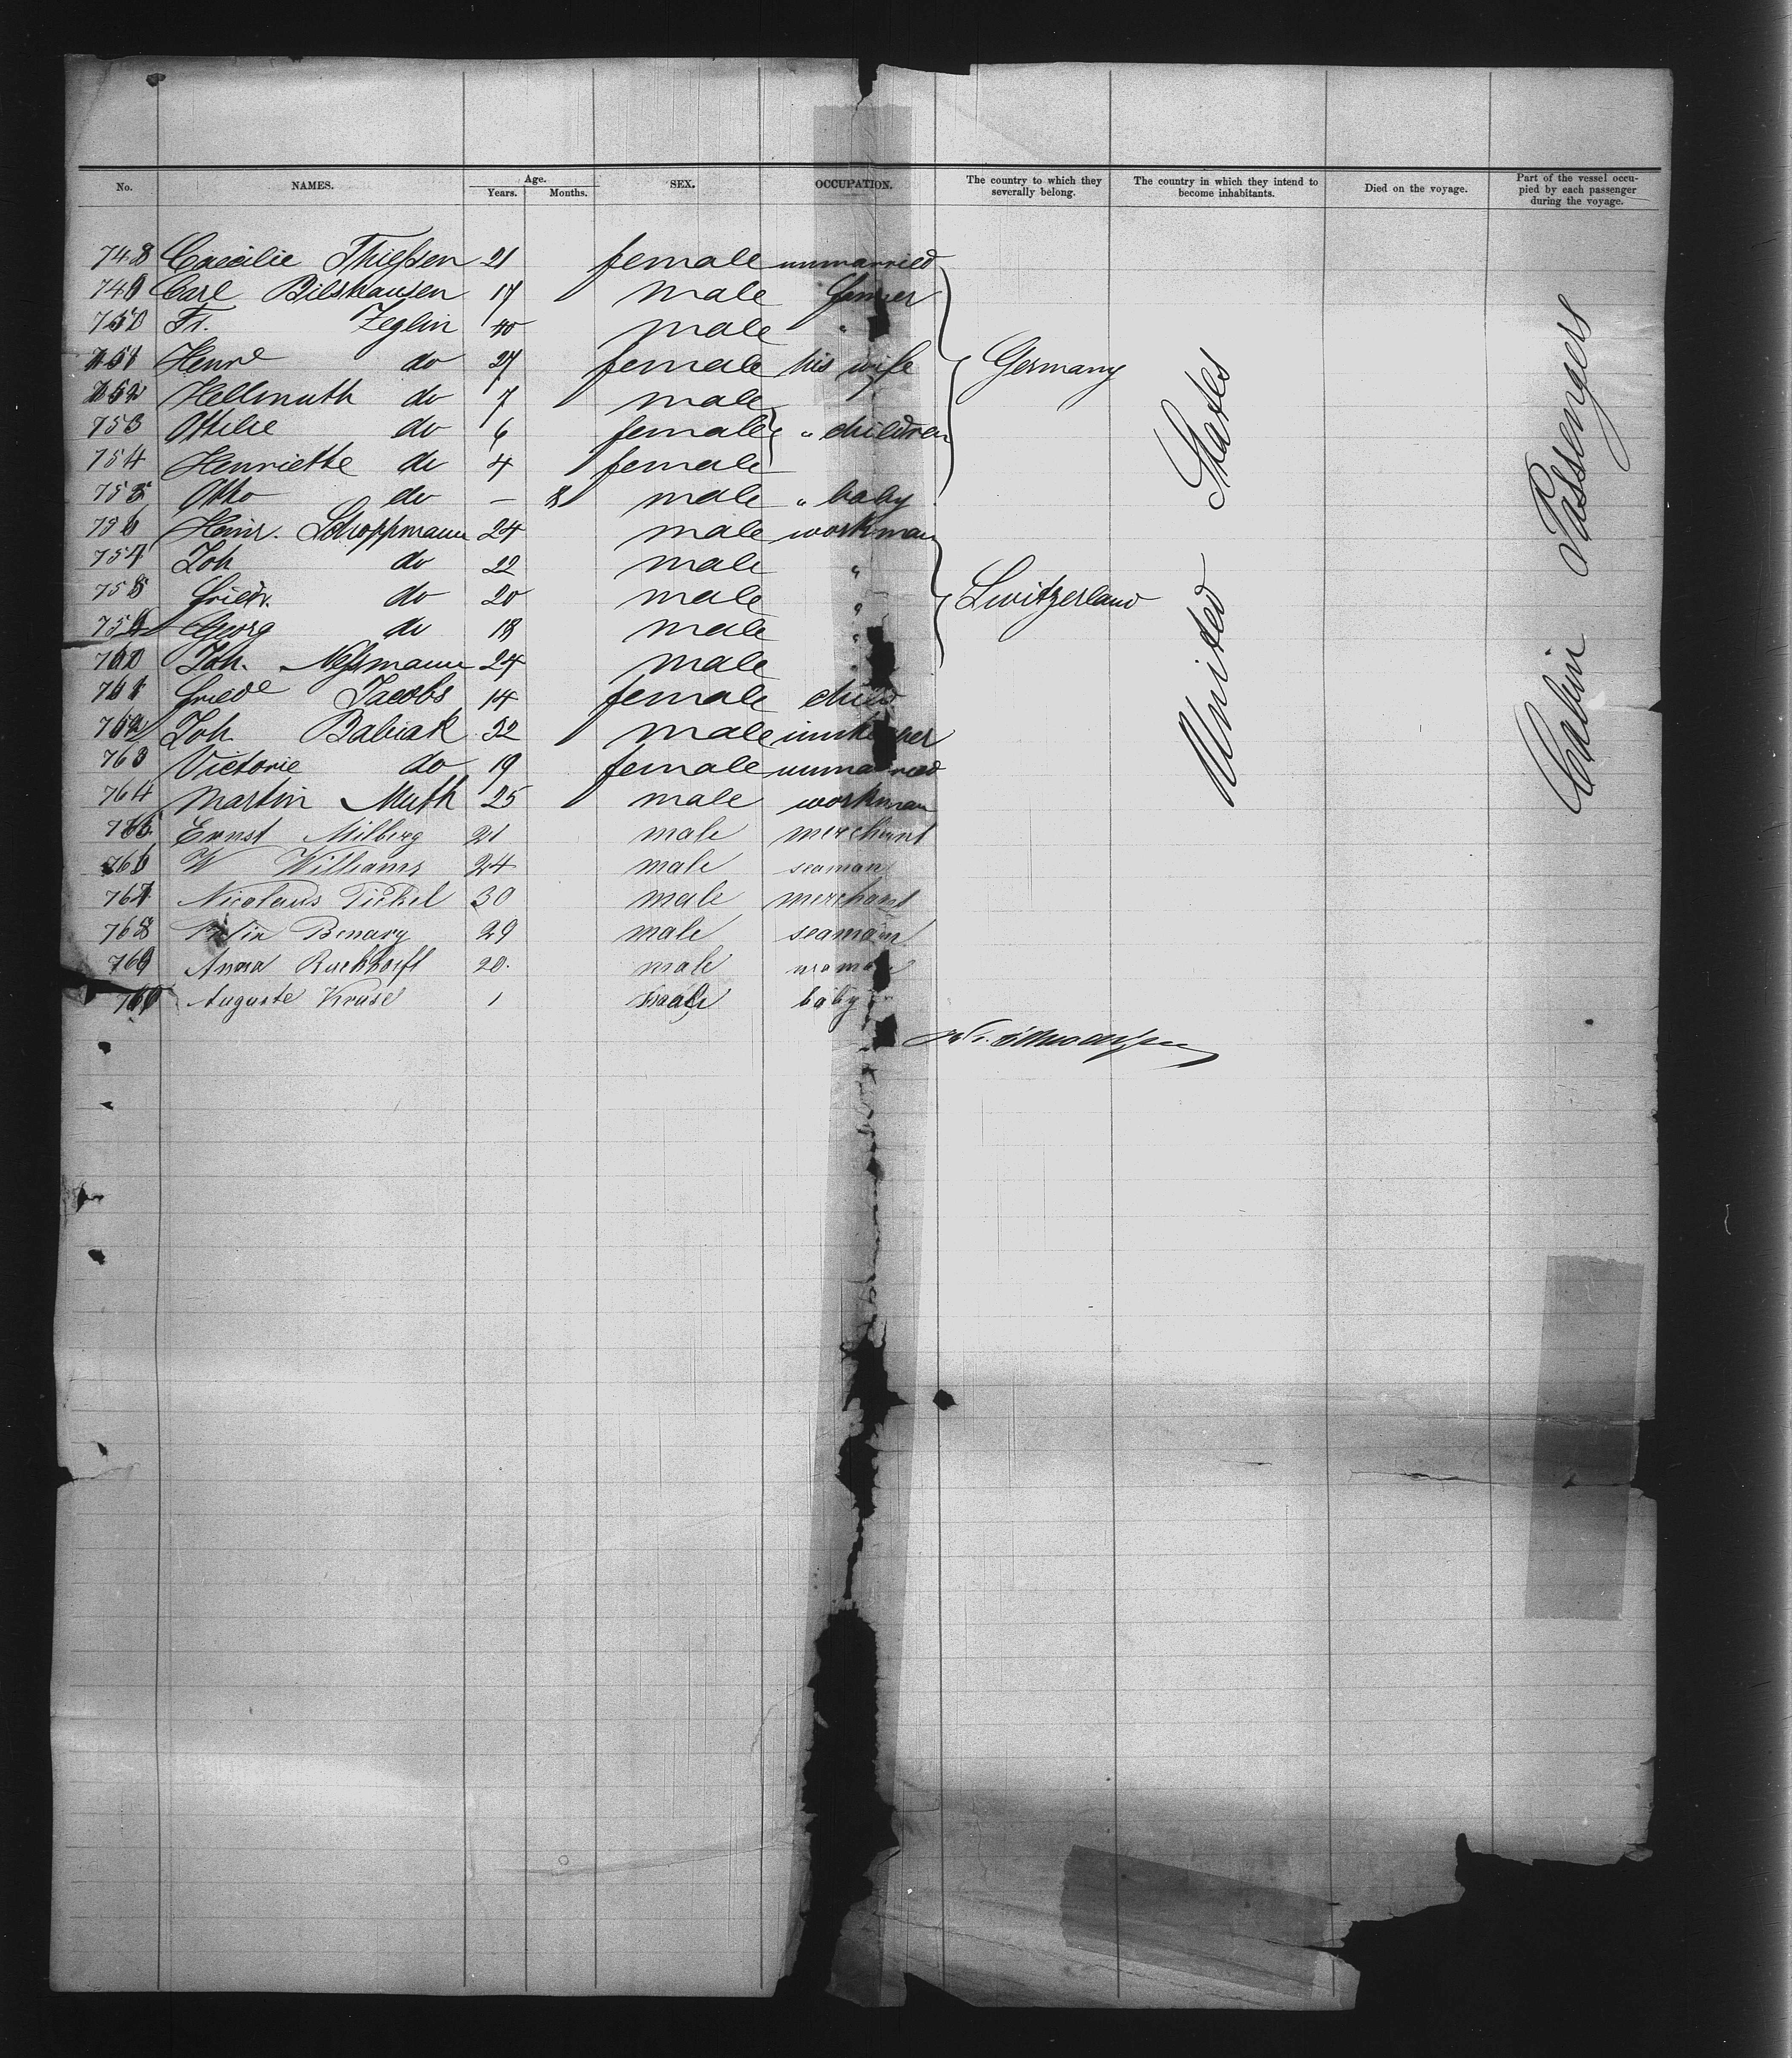 No. NAMES. Age. Years. Months. SEX. OCCUPATION. The country to which they severally belong. The country in which they intend to become inhabitants. Died on the voyage. Part of the vessel occupied by each passenger during the voyage.
748 Caecilie Thießen 21 female unmarried
749 Carl Bilshausen 17 male farmer
750 Fr. Zeglin 40 male "
751 Henre do 27 female his wife Germany
752 Hellmuth do 7 male
753 Ottilie do 6 female " children
754 Henriette do 4 female
755 Otto do — 8 male " baby
756 Heinr. Schoppmann 24 male workman
757 Joh do 22 male "
758 Friedr. do 20 male " Switzerland
759 Georg do 18 male "
760 Joh. Neßmann 24 male
761 Friede Jacobs 14 female child
762 Joh. Babiak 32 male innkeeper
763 Victorie do 19 female unmarried
764 Martin Muth 25 male workman
765 Ernst Milberg 21 male merchant
766 W Williams 24 male seaman
767 Nicolaus Tickel 30 male merchant
768 Benary 29 male seaman
769 Anna 20. male
Auguste Kruse 1 baby
United States
Cabin Passengers